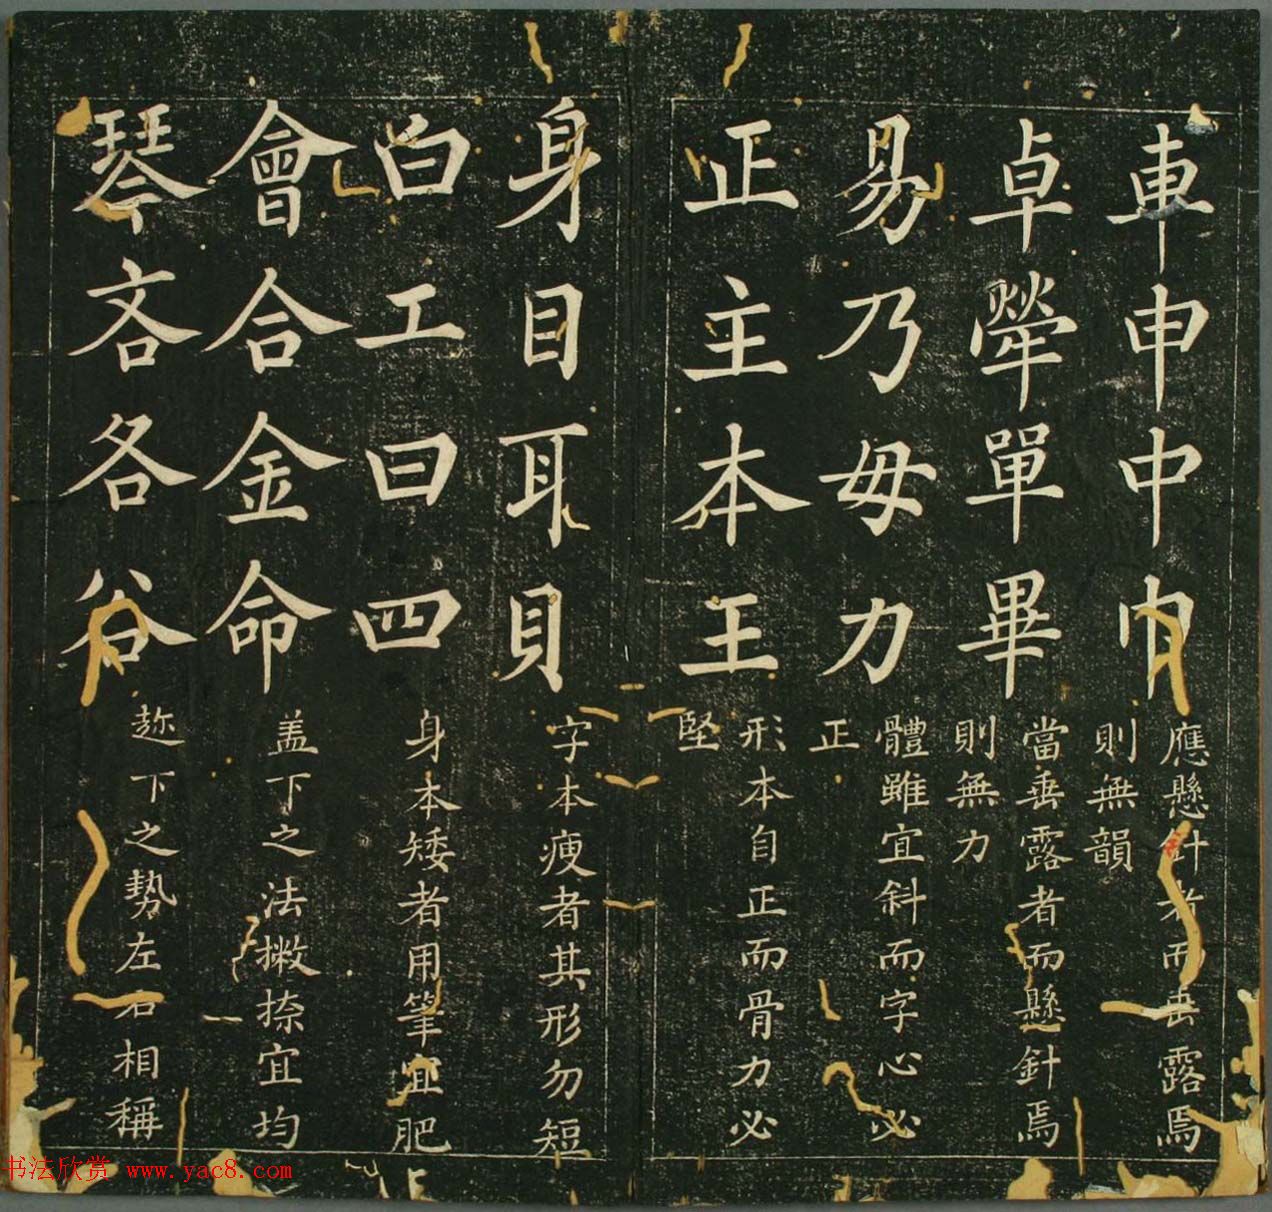 車申中巾
應懸針者而垂露焉
則無韻
卓犖單畢
當垂露者而懸針焉
則無力
易乃毋力
體雖宜斜而字心必
正
正主本王
形本自正而骨力必
堅
身目耳貝
字本疲者其形勿短
白工曰四
身本矮者用筆宜肥
會合金命
盖下之法撇捺宜均
琴吝各谷
趂下之勢左右相稱
书法欣赏 www.yac8.com